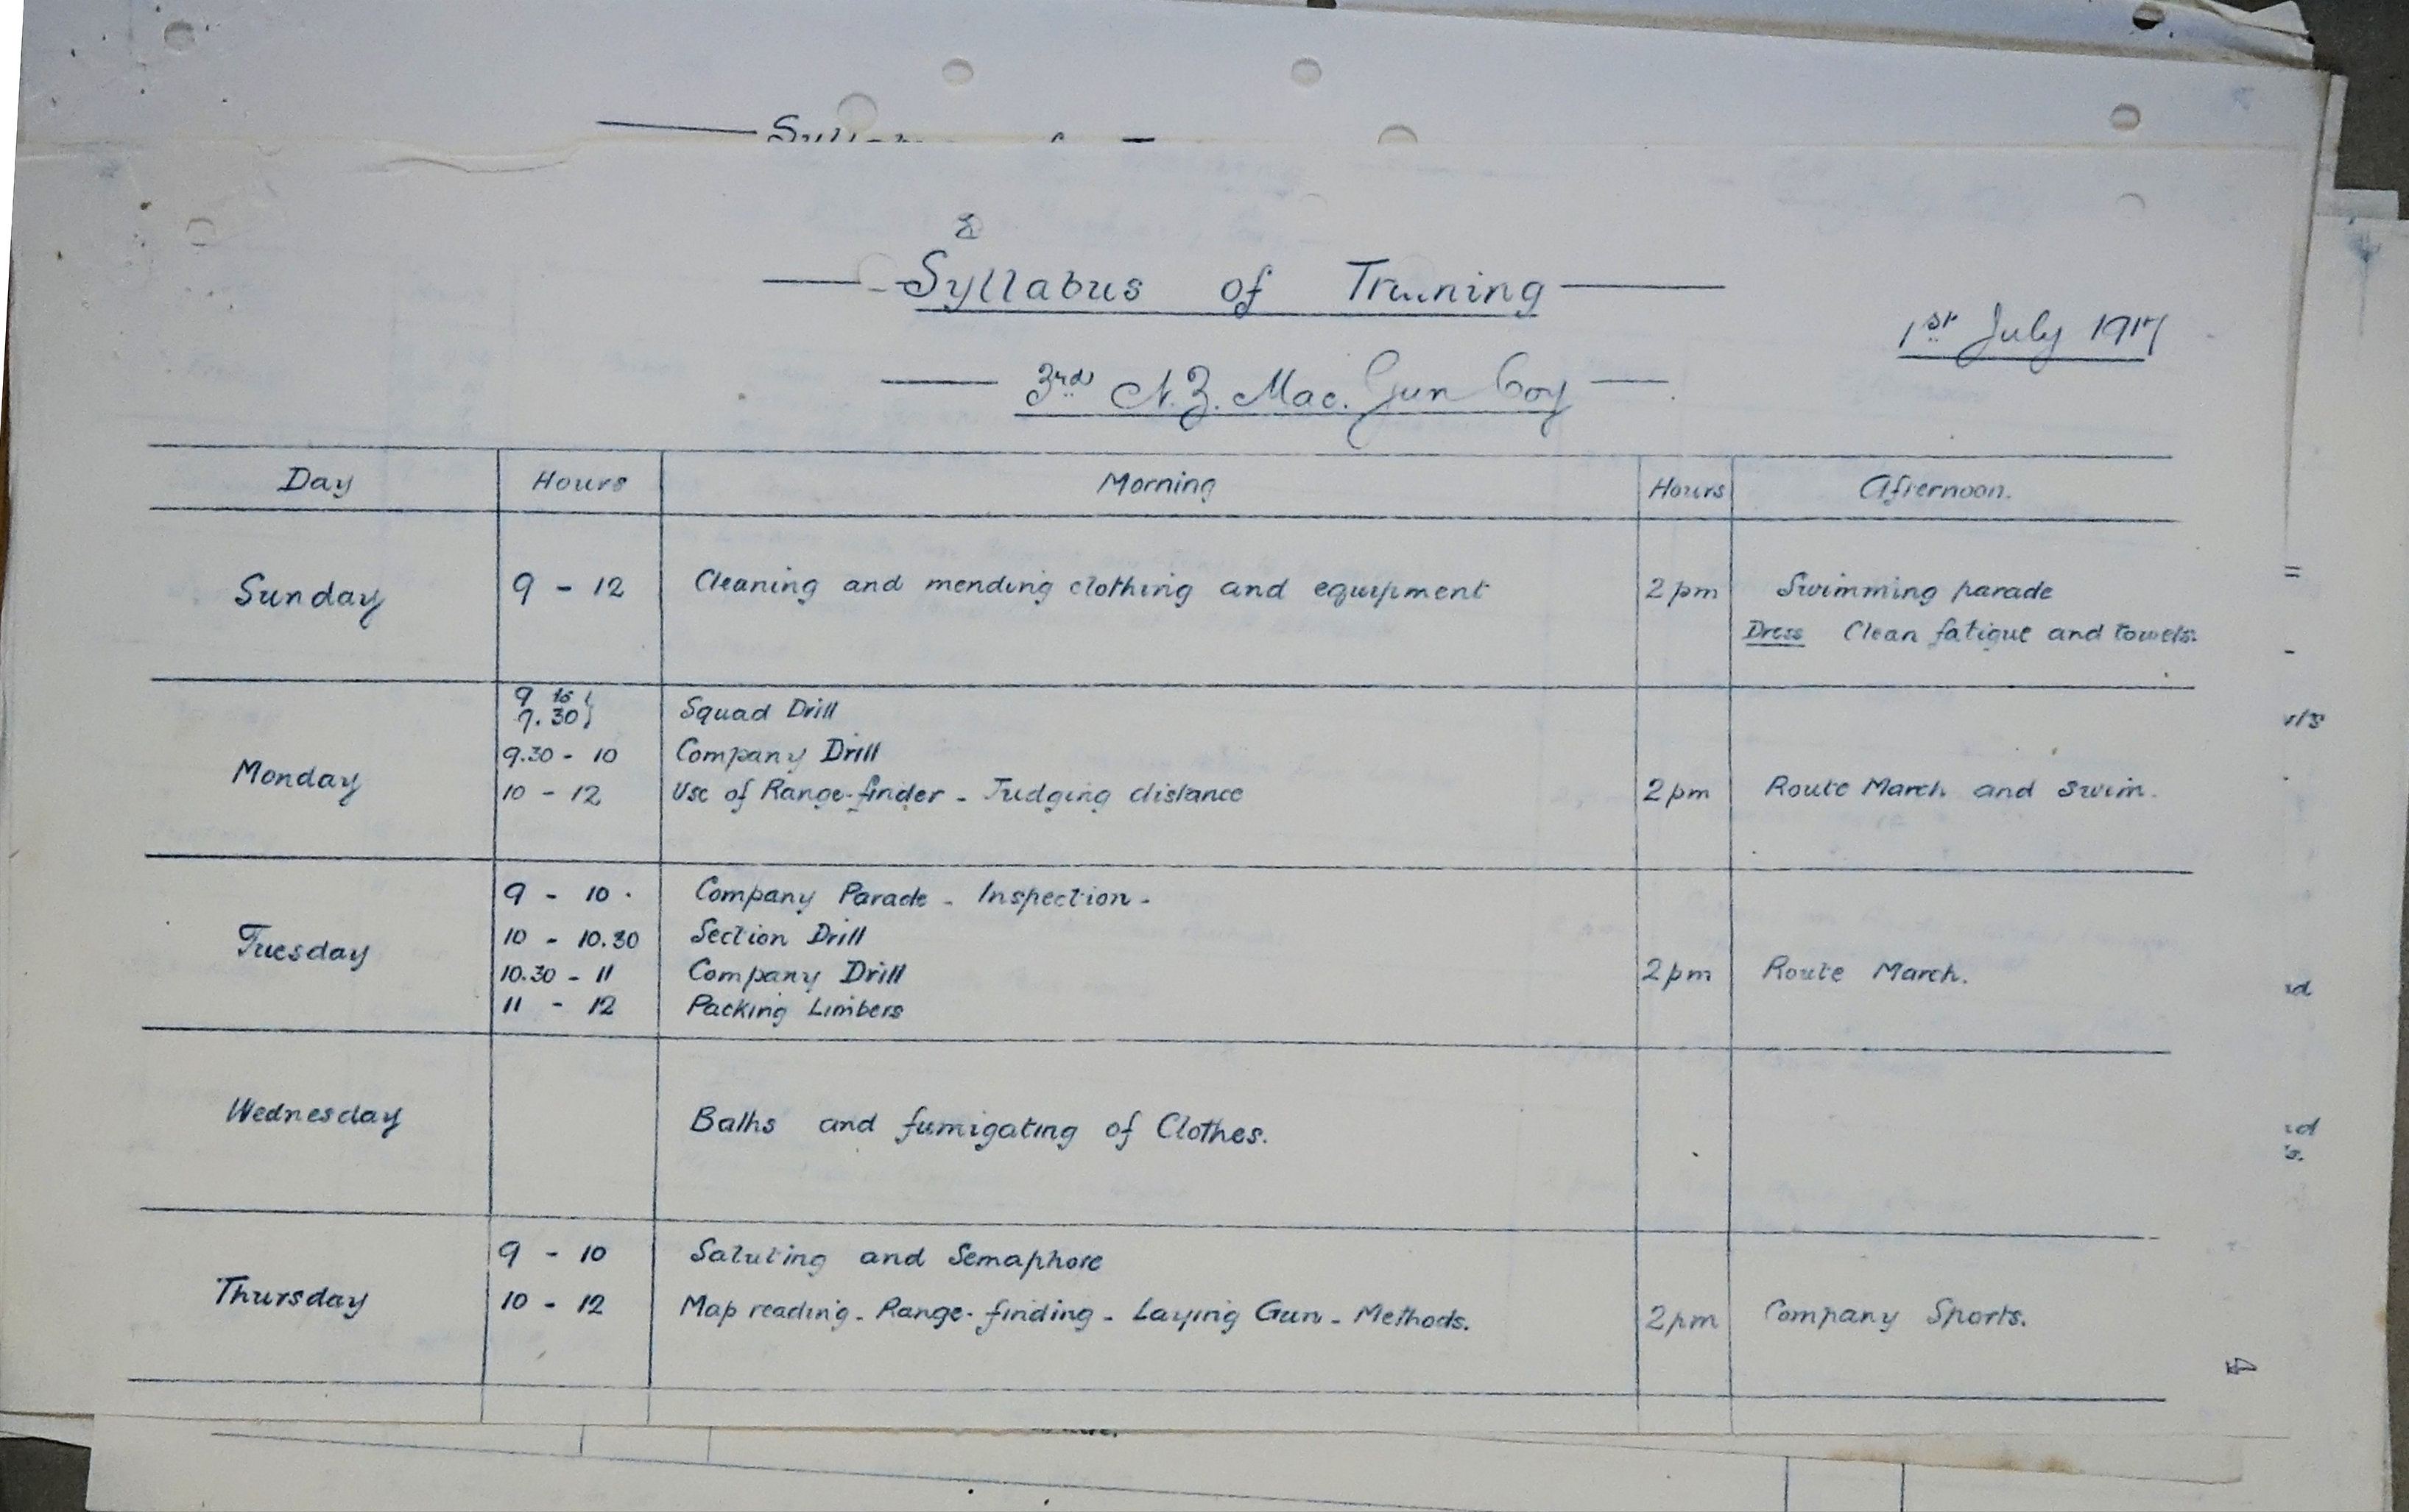 Syllabus of Training
1st July 1917
3rd N.Z. Mac. Gun Coy
Day Hours Morning Hours Afternoon.
Sunday 9 - 12 Cleaning and mending clothing and equipment 2 pm Swimming parade
Dress Clean fatigue and towels.
9 15
9.30 Squad Drill
9.30 - 10 Company Drill
Monday 10 - 12 Use of Range-finder - Judging distance 2 pm Route March and Swim.
9 - 10 . Company Parade - Inspection -
10 - 10.30 Section Drill
Tuesday 10.30 - 11 Company Drill 2 pm Route March.
11 - 12 Packing Limbers
Wednesday Baths and fumigating of Clothes.
9 - 10 Saluting and Semaphore
Thursday 10 - 12 Map reading - Range-finding - Laying Gun - Methods. 2 pm Company Sports.